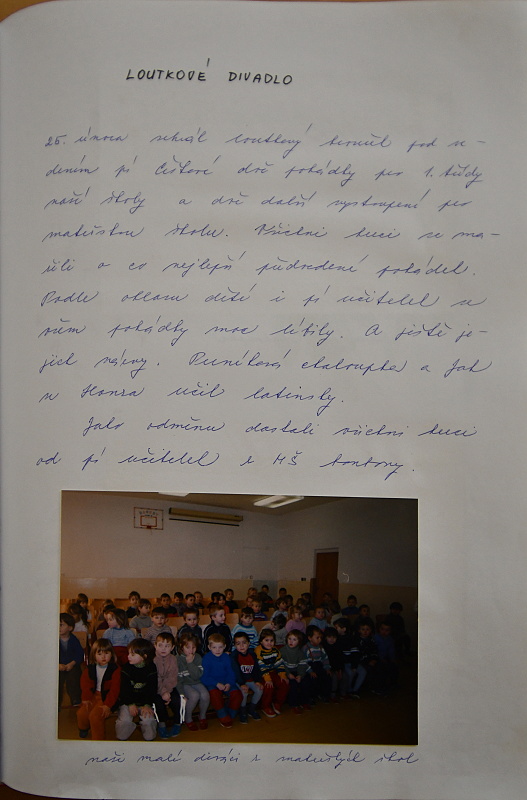 LOUTKOVÉ DIVADLO
25. února sehrál loutkový kroužek pod ve-
dením pí Čiškové dvě pohádky pro 1. třídy
naší školy a dvě další vystoupení pro
mateřskou školu. Všichni herci se sna-
žili o co nejlepší předvedení pohádek.
Podle ohlasu dětí i pí učitelek se
všem pohádky moc líbily. A ještě je-
jich názvy. Perníková chaloupka a Jak
se Honza učil latinsky.
Jako odměnu dostali všichni herci
od pí učitelek z MŠ bonbony.
naši malí diváci z mateřských škol